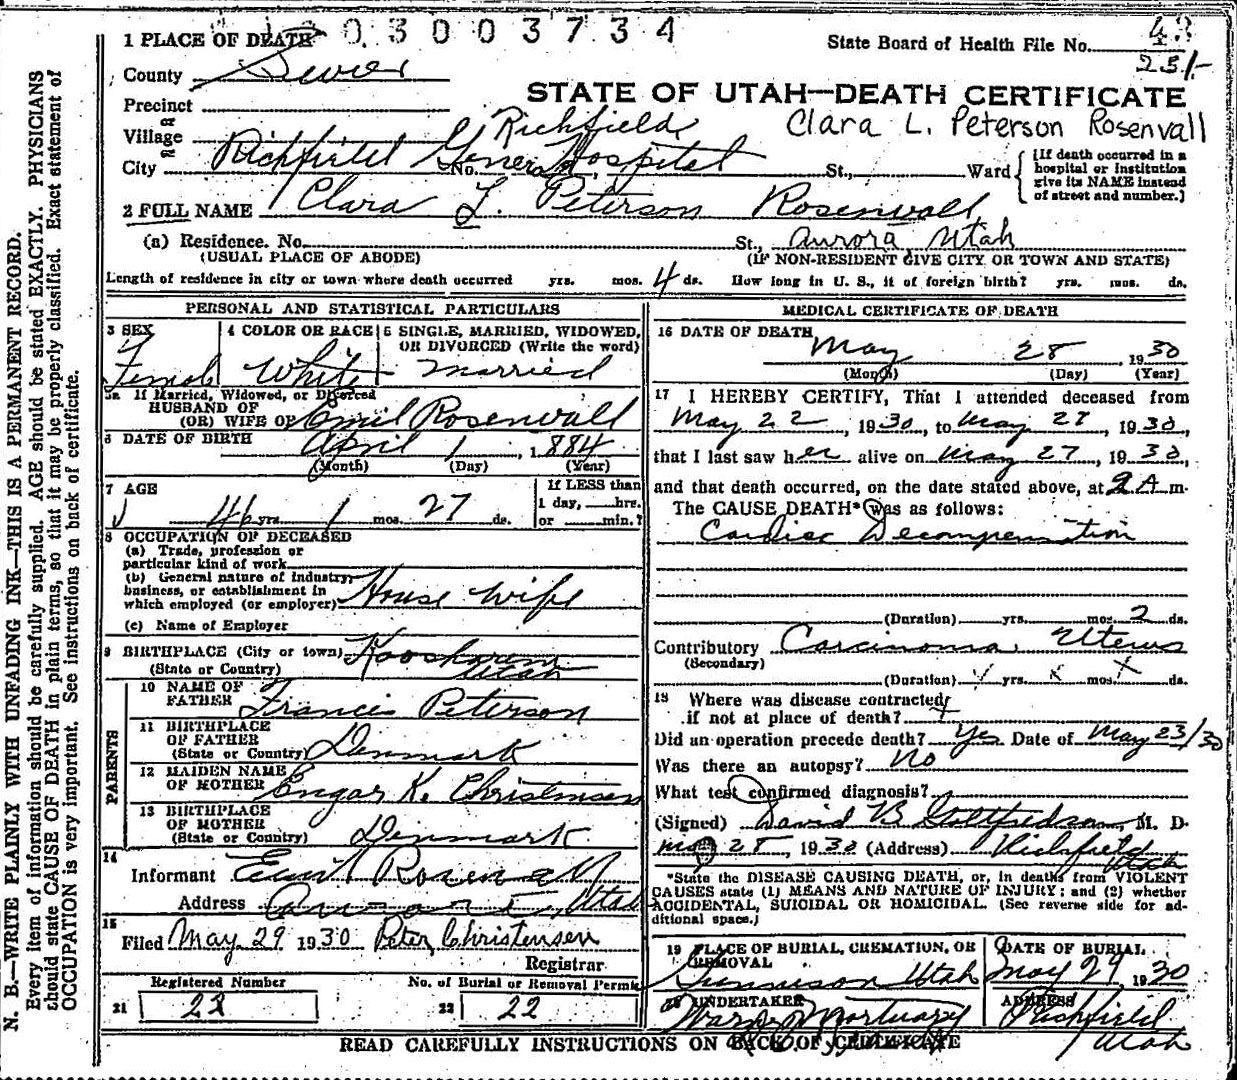 03003734
1 PLACE OF DEATH
State Board of Health File No. 43
County Sevier
231-
STATE OF UTAH—DEATH CERTIFICATE
Precinct
or
Village Richfield
Clara L. Peterson Rosenvall
or
City Richfield General Hospital No. St., Ward
[If death occurred in a hospital or institution give its NAME instead of street and number.]
2 FULL NAME Clara L. Peterson Rosenvall
(a) Residence. No. St., Aurora, Utah
(USUAL PLACE OF ABODE) (IF NON-RESIDENT GIVE CITY OR TOWN AND STATE)
Length of residence in city or town where death occurred yrs. mos. 4 ds. How long in U. S., if of foreign birth? yrs. mos. ds.
PERSONAL AND STATISTICAL PARTICULARS
3 SEX 4 COLOR OR RACE 5 SINGLE, MARRIED, WIDOWED,
OR DIVORCED (Write the word)
Female White Married
5a If Married, Widowed, or Divorced
HUSBAND OF
(OR) WIFE OF Emil Rosenvall
6 DATE OF BIRTH April 1, 1884
(Month) (Day) (Year)
7 AGE
If LESS than
1 day, hrs.
46 yrs. 1 mos. 27 ds. or min.?
8 OCCUPATION OF DECEASED
(a) Trade, profession or
particular kind of work
(b) General nature of industry,
business, or establishment in
which employed (or employer) House wife
(c) Name of Employer
9 BIRTHPLACE (City or town) Koosharem
(State or Country) Utah
PARENTS
10 NAME OF
FATHER Francis Peterson
11 BIRTHPLACE
OF FATHER
(State or Country) Denmark
12 MAIDEN NAME
OF MOTHER Engar K. Christensen
13 BIRTHPLACE
OF MOTHER
(State or Country) Denmark
14
Informant Rosenvall
Address Aurora, Utah
15
Filed May 29 1930 Peter Christensen
Registrar
Registered Number No. of Burial or Removal Permit
21 22 22
MEDICAL CERTIFICATE OF DEATH
16 DATE OF DEATH
May 28 1930
(Month) (Day) (Year)
17 I HEREBY CERTIFY, That I attended deceased from
May 22, 1930, to May 28, 1930,
that I last saw her alive on May 27, 1930,
and that death occurred, on the date stated above, at 2 A m.
The CAUSE DEATH* was as follows:
Cardiac Decompensation
(Duration) yrs. mos. 2 ds.
Contributory Carcinoma Uterus
(Secondary)
(Duration) yrs. x mos. x ds.
18 Where was disease contracted
if not at place of death?
Did an operation precede death? Yes Date of May 23/30
Was there an autopsy? No
What test confirmed diagnosis?
(Signed) David B Gottfredson, M. D.
May 28, 1930 (Address) Richfield
Utah
*State the DISEASE CAUSING DEATH, or, in deaths from VIOLENT
CAUSES state (1) MEANS AND NATURE OF INJURY; and (2) whether
ACCIDENTAL, SUICIDAL OR HOMICIDAL. (See reverse side for ad-
ditional space.)
19 PLACE OF BURIAL, CREMATION, OR
REMOVAL
Gunnison Utah
DATE OF BURIAL
May 29 1930
20 UNDERTAKER
Mortuary
ADDRESS
Richfield
Utah
READ CAREFULLY INSTRUCTIONS ON BACK OF CERTIFICATE
N. B.—WRITE PLAINLY WITH UNFADING INK—THIS IS A PERMANENT RECORD.
Every item of information should be carefully supplied. AGE should be stated EXACTLY. PHYSICIANS
should state CAUSE OF DEATH in plain terms, so that it may be properly classified. Exact statement of
OCCUPATION is very important. See instructions on back of certificate.